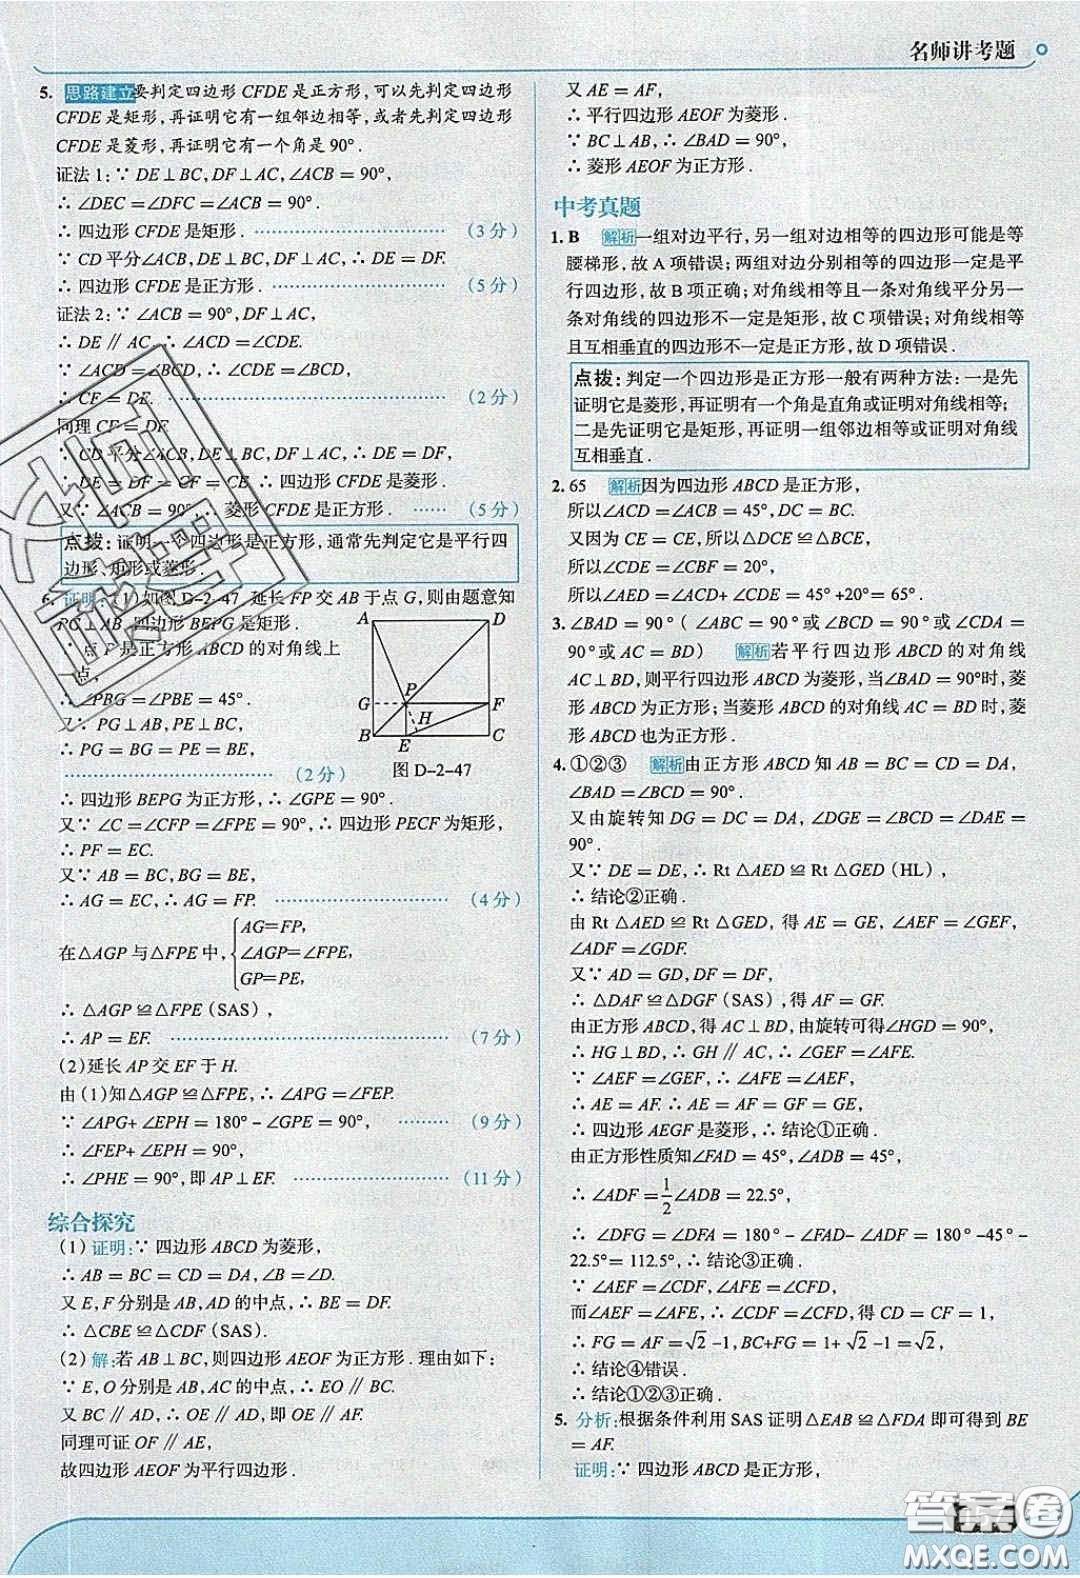 名师讲考题
5. 思路建立 要判定四边形 CFDE 是正方形,可以先判定四边形
CFDE 是矩形,再证明它有一组邻边相等,或者先判定四边形
CFDE 是菱形,再证明它有一个角是 90°.
证法 1:∵ DE⊥BC,DF⊥AC,∠ACB = 90°,
∴ ∠DEC =∠DFC =∠ACB = 90°.
∴ 四边形 CFDE 是矩形. (3 分)
∵ CD 平分∠ACB,DE⊥BC,DF⊥AC,∴ DE = DF.
∴ 四边形 CFDE 是正方形. (5 分)
证法 2:∵ ∠ACB = 90°,DF⊥AC,
∴ DE ∥ AC,∴ ∠ACD =∠CDE.
∵ ∠ACD =∠BCD,∴ ∠CDE =∠BCD,
∴ CE = DE. (2 分)
同理 CF = DF.
∵ CD 平分∠ACB,DE⊥BC,DF⊥AC,∴ DE = DF,
∴ DE = DF = CF = CE,∴ 四边形 CFDE 是菱形.
又∵ ∠ACB = 90°,∴ 菱形 CFDE 是正方形. (5 分)
点拨:证明一个四边形是正方形,通常先判定它是平行四
边形、矩形或菱形.
6. 证明:(1)如图 D-2-47,延长 FP 交 AB 于点 G,则由题意知
PG⊥AB,四边形 BEPG 是矩形.
∵ 点 P 是正方形 ABCD 的对角线上
点,
∴ ∠PBG =∠PBE = 45°.
又∵ PG⊥AB,PE⊥BC,
∴ PG = BG = PE = BE,
(2 分)
A D
G P F
H
B E C
图 D-2-47
∴ 四边形 BEPG 为正方形,∴ ∠GPE = 90°.
又∵ ∠C =∠CFP =∠FPE = 90°,∴ 四边形 PECF 为矩形,
∴ PF = EC.
又∵ AB = BC,BG = BE,
∴ AG = EC,∴ AG = FP. (4 分)
在△AGP 与△FPE 中, { AG=FP,
∠AGP=∠FPE,
GP=PE,
∴ △AGP ≌△FPE(SAS),
∴ AP = EF. (7 分)
(2)延长 AP 交 EF 于 H.
由(1)知△AGP ≌△FPE,∴ ∠APG =∠FEP.
∵ ∠APG+ ∠EPH = 180° - ∠GPE = 90°, (9 分)
∴ ∠FEP+ ∠EPH = 90°,
∴ ∠PHE = 90°,即 AP⊥EF. (11 分)
综合探究
(1)证明:∵ 四边形 ABCD 为菱形,
∴ AB = BC = CD = DA,∠B =∠D.
又 E,F 分别是 AB,AD 的中点,∴ BE = DF.
∴ △CBE ≌△CDF(SAS).
(2)解:若 AB⊥BC,则四边形 AEOF 为正方形.理由如下:
∵ E,O 分别是 AB,AC 的中点,∴ EO ∥ BC.
又 BC ∥ AD,∴ OE ∥ AD,即 OE ∥ AF.
同理可证 OF ∥ AE,
故四边形 AEOF 为平行四边形.
又 AE = AF,
∴ 平行四边形 AEOF 为菱形.
∵ BC⊥AB,∴ ∠BAD = 90°.
∴ 菱形 AEOF 为正方形.
中考真题
1. B 解析 一组对边平行,另一组对边相等的四边形可能是等
腰梯形,故 A 项错误;两组对边分别相等的四边形一定是平
行四边形,故 B 项正确;对角线相等且一条对角线平分另一
条对角线的四边形不一定是矩形,故 C 项错误;对角线相等
且互相垂直的四边形不一定是正方形,故 D 项错误.
点拨:判定一个四边形是正方形一般有两种方法:一是先
证明它是菱形,再证明有一个角是直角或证明对角线相等;
二是先证明它是矩形,再证明一组邻边相等或证明对角线
互相垂直.
2. 65 解析 因为四边形 ABCD 是正方形,
所以∠ACD =∠ACB = 45°,DC = BC.
又因为 CE = CE,所以△DCE ≌△BCE,
所以∠CDE =∠CBF = 20°,
所以∠AED =∠ACD+ ∠CDE = 45° +20°= 65°.
3. ∠BAD = 90°(∠ABC = 90°或∠BCD = 90°或∠CDA =
90°或 AC = BD) 解析 若平行四边形 ABCD 的对角线
AC⊥BD,则平行四边形 ABCD 为菱形,当∠BAD = 90°时,菱
形 ABCD 为正方形;当菱形 ABCD 的对角线 AC = BD 时,菱
形 ABCD 也为正方形.
4. ①②③ 解析 由正方形 ABCD 知 AB = BC = CD = DA,
∠BAD =∠BCD = 90°.
又由旋转知 DG = DC = DA,∠DGE =∠BCD =∠DAE =
90°.
又∵ DE = DE,∴ Rt △AED ≌ Rt △GED(HL),
∴ 结论②正确.
由 Rt △AED ≌ Rt △GED,得 AE = GE,∠AEF =∠GEF,
∠ADF =∠GDF.
又∵ AD = GD,DF = DF,
∴ △DAF ≌△DGF(SAS),得 AF = GF.
由正方形 ABCD,得 AC⊥BD,由旋转可得∠HGD = 90°,
∴ HG⊥BD,∴ GH ∥ AC,∴ ∠GEF =∠AFE.
∵ ∠AEF =∠GEF,∴ ∠AFE =∠AEF,
∴ AE = AF.∴ AE = AF = GF = GE,
∴ 四边形 AEGF 是菱形,∴ 结论①正确.
由正方形性质知∠FAD = 45°,∠ADB = 45°,
∴ ∠ADF =1/2∠ADB = 22.5°,
∴ ∠DFG =∠DFA = 180° - ∠FAD - ∠ADF = 180° -45° -
22.5°= 112.5°,∴ 结论③正确.
∵ ∠AEF =∠CDF,∠AFE =∠CFD,
而∠AEF =∠AFE,∴ ∠CDF =∠CFD,得 CD = CF = 1,
∴ FG = AF =√2 -1,BC+FG = 1+ √2 -1=√2,
∴ 结论④错误.
∴ 结论①②③正确.
5. 分析:根据条件利用 SAS 证明△EAB ≌△FDA 即可得到 BE
= AF.
证明:∵ 四边形 ABCD 是正方形,
答案卷
MXQE.COM